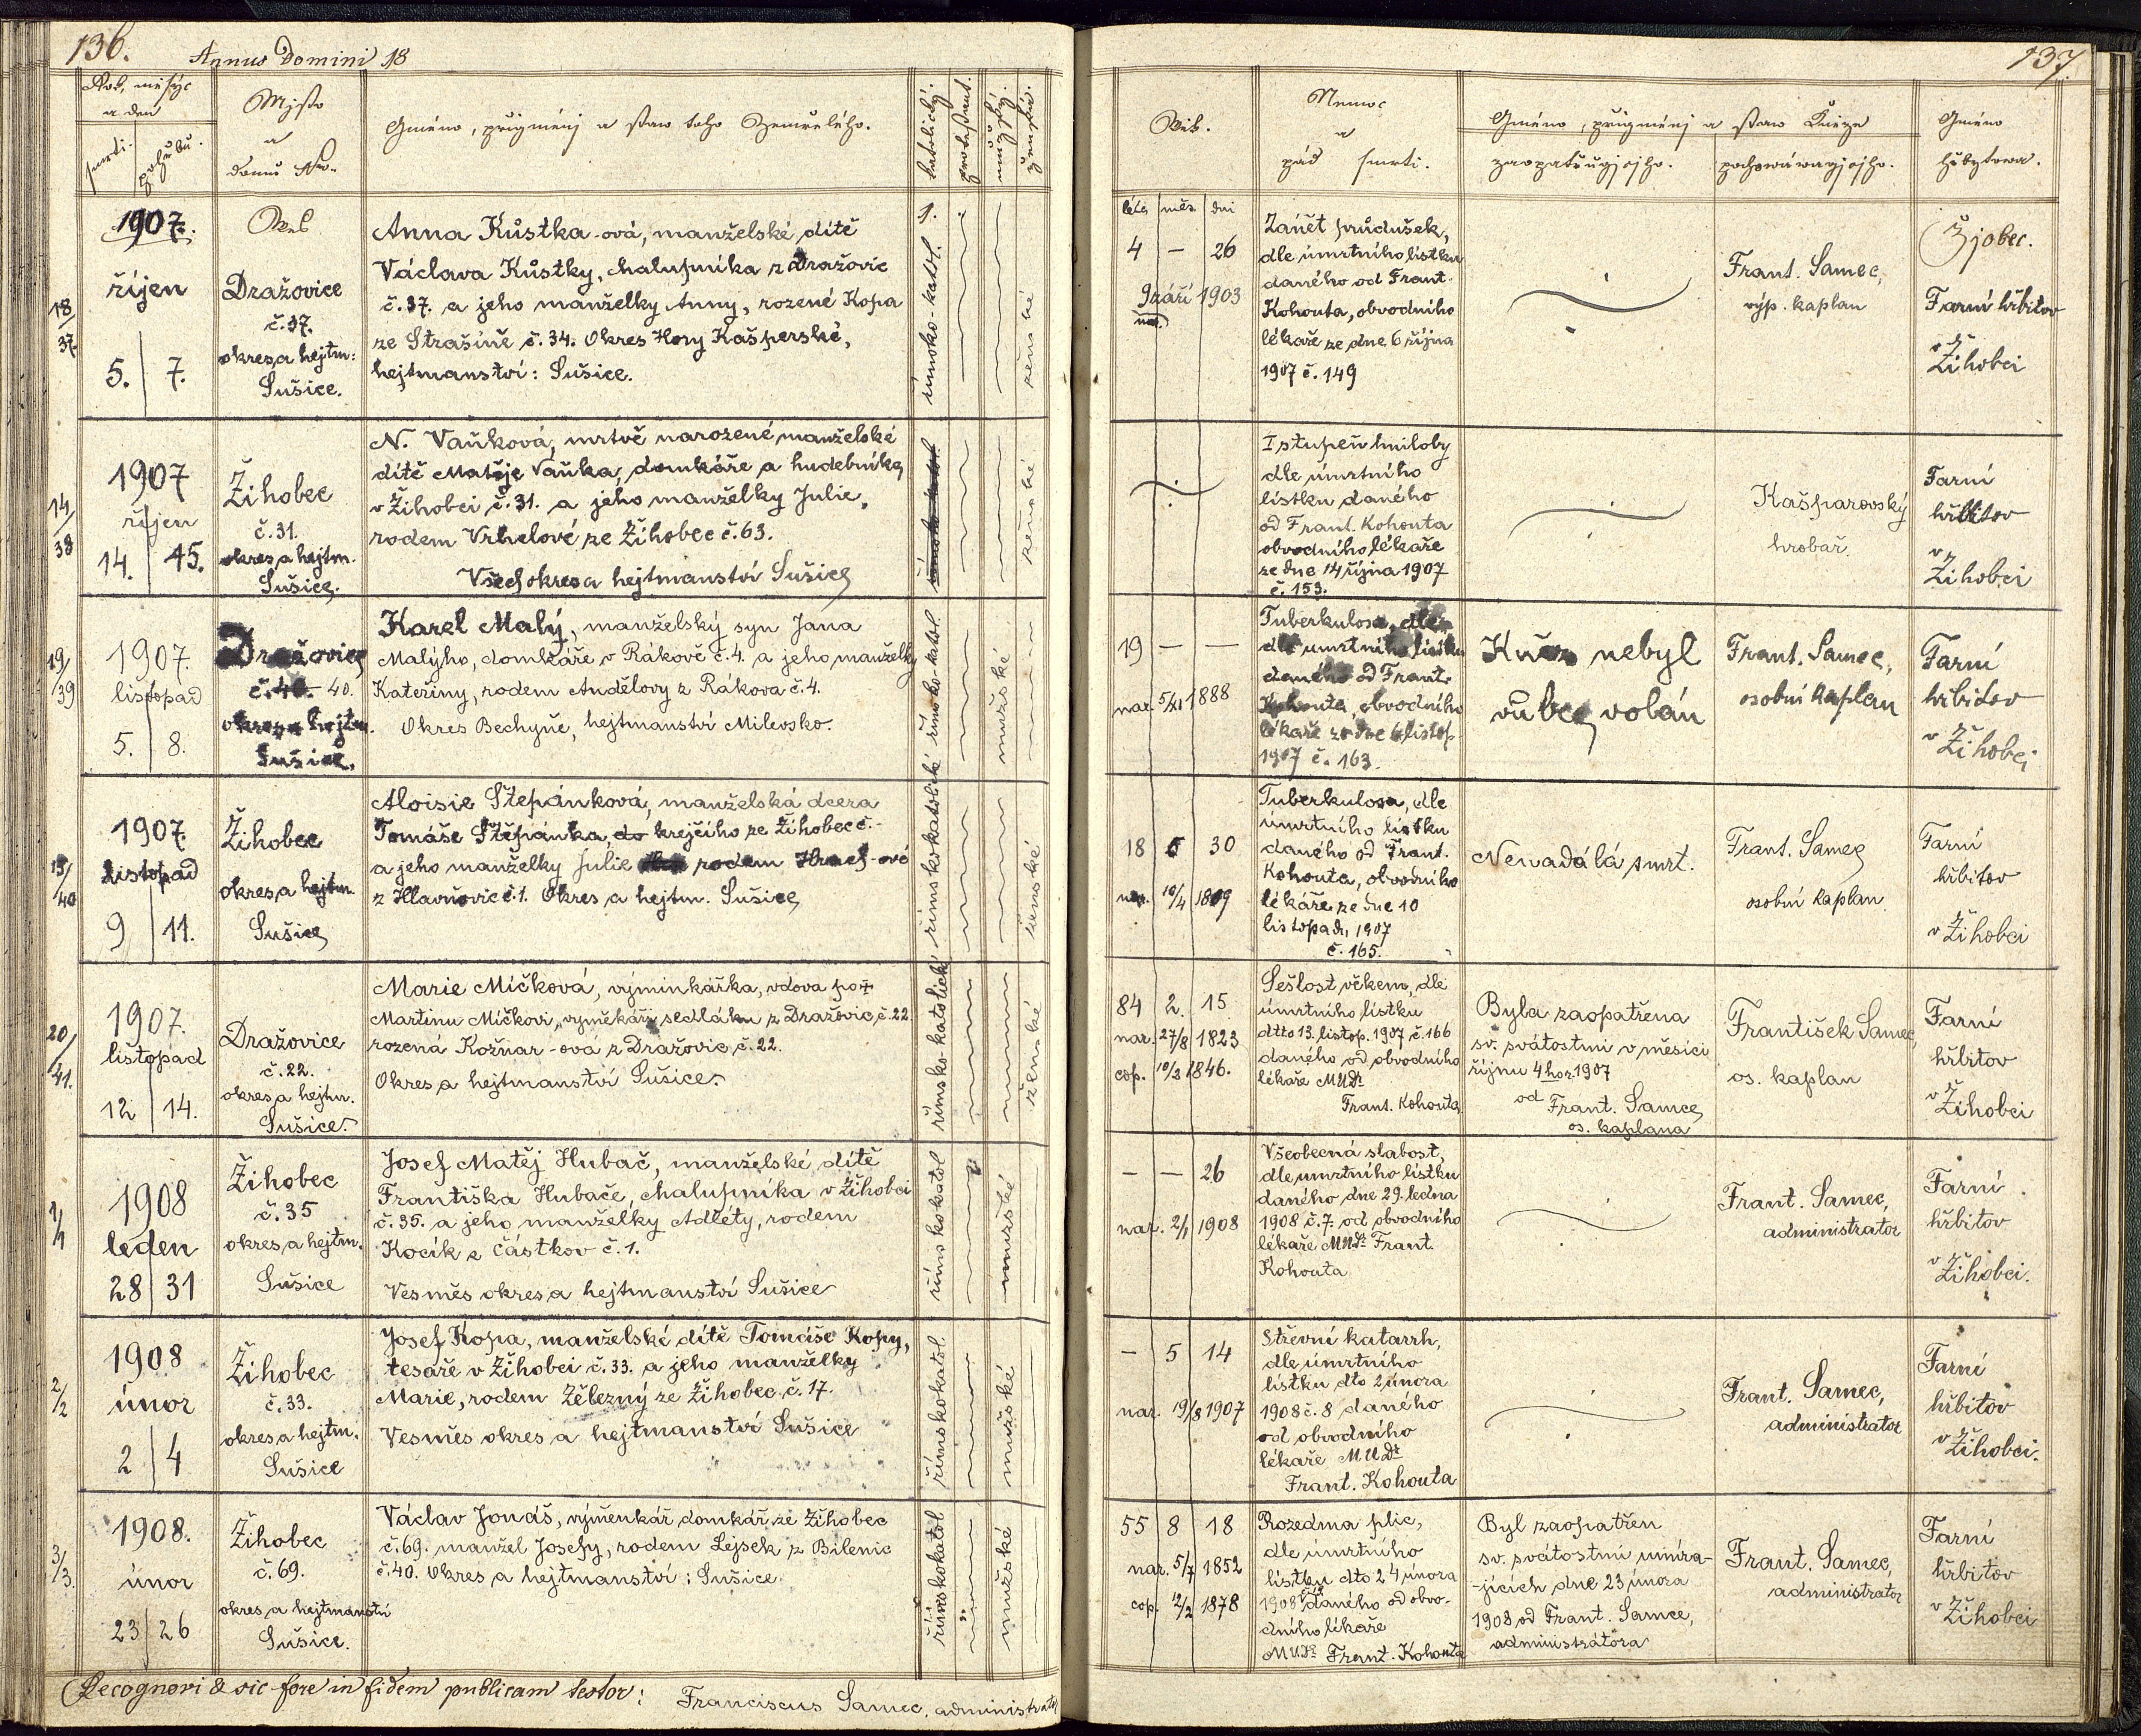 136.
Annus Domini 18
Rok, měsýc
a den
smrti.
pohřbu.
Mjsto
a
domu Nro.
Gméno, přigménj a staw toho Zemřelého.
katolický.
protestant.
mužský.
ženský.
1907.
říjen
5. 7.
18/37.
Wes
Dražovice
č. 37.
okres a hejtm:
Sušice.
Anna Kůstka-ová, manželské dítě
Václava Kůstky, chalupníka z Dražovic
č. 37. a jeho manželky Anny, rozené Kopa
ze Strašíně č. 34. Okres Hory Kašperské,
hejtmanství: Sušice.
římsko-katol.
ženské
1907
říjen
14. 15.
14/38
Žihobec
č. 31.
okres a hejtm.
Sušice.
N. Vaňková, mrtvě narozené manželské
dítě Matěje Vaňka, domkáře a hudebníka
v Žihobci č. 31. a jeho manželky Julie,
rodem Vrhelové ze Žihobec č. 63.
Všech okres a hejtmanství Sušice
římsko-katol.
ženské
1907.
listopad
5. 8.
19/39
Dražovice
č. 40. 40.
okres a hejtm.
Sušice.
Karel Malý, manželský syn Jana
Malýho, domkáře v Rákově č. 4. a jeho manželky
Kateřiny, rodem Andělovy z Rákova č. 4.
Okres Bechyně, hejtmanství Milevsko.
římsko-katol.
mužské
1907.
listopad
9 11.
15/40
Žihobec
okres a hejtm.
Sušice
Aloisie Štěpánková, manželská dcera
Tomáše Štěpánka, do krejčího ze Žihobec č. -
a jeho manželky Julie rodem Hrach-ové
z Hlavňovic č 1. Okres a hejtm. Sušice
římskokatolické
ženské
1907.
listopad
12 14.
20/41.
Dražovice
č. 22.
okres a hejtm.
Sušice.
Marie Míčková, výminkářka, vdova po †
Martinu Míčkovi, výměkáři sedláku z Dražovic, č. 22.
rozená Kožnar-ová z Dražovic č. 22.
Okres a hejtmanství Sušice.
římsko-katolické
ženské
1908
leden
28 31
1/1
Žihobec
č. 35
okres a hejtm.
Sušice
Josef Matěj Hubač, manželské dítě
Františka Hubače, chalupníka v Žihobci
č. 35. a jeho manželky Adléty, rodem
Kocík z Částkov č. 1.
Vesměs okres a hejtmanství Sušice
římskokatol
mužské
1908
únor
2 4
2/2
Žihobec
č. 33.
okres a hejtm.
Sušice
Josef Kopa, manželské dítě Tomáše Kopy,
tesaře v Žihobci č. 33. a jeho manželky
Marie, rodem Železný ze Žihobec č. 17.
Vesměs okres a hejtmanství Sušice
římskokatol.
mužské
1908.
únor
23 26
3/3.
Žihobec
č. 69.
okres a hejtmanství
Sušice.
Václav Jonáš, výměnkář, domkář ze Žihobec
č. 69. manžel Josefy, rodem Lejsek z Bílenic
č. 40. Okres a hejtmanství: Sušice
římskokatol
mužské
Recognovi & sic fore in fidem publicam testor: Franciscus Samec, administrator
137
Wěk.
Nemoc
a
pád smrti.
Gméno, přigménj a staw Kněze
zaopatřugjcjho.
pochowáwagjcjho.
Gméno
hřbytowa.
léta měs. dni
4 — 26
9 září 1903
nar.
Zánět průdušek,
dle úmrtního lístku
daného od Frant.
Kohouta, obvodního
lékaře ze dne 6 října
1907 č. 149
Frant. Samec,
výp. kaplan
Žjobec.
Farní hřbitov
v
Žihobci
I stupeň hniloby
dle úmrtního
lístku daného
od Frant. Kohouta
obvodního lékaře
ze dne 14 října 1907
č. 153.
Kašparovský
hrobař.
Farní
hřbitov
v
Žihobci
19 — —
nar. 5/XI 1888
Tuberkulosa, dle
dle úmrtního lístku
daného od Frant.
Kohouta, obvodního
lékaře ze dne 6 listop.
1907 č. 163.
Kněz nebyl
vůbec volán
Frant. Samec,
osobní kaplan
Farní
hřbitov
v Žihobci
18 6 30
nar. 10/4 1889
Tuberkulosa, dle
úmrtního lístku
daného od Frant.
Kohouta, obvodního
lékaře ze dne 10
listopadu 1907
č. 165.
Nenadálá smrt.
Frant. Samec
osobní kaplan
Farní
hřbitov
v Žihobci
84 2. 15
nar. 27/8 1823
cop. 10/3 1846.
Sešlost věkem, dle
úmrtního lístku
dtto 13. listop. 1907 č. 166
daného od obvodního
lékaře MUDr.
Frant. Kohouta.
Byla zaopatřena
sv. svátostmi v měsíci
říjnu 4 hor. 1907
od Frant. Samce,
os. kaplana
František Samec
os. kaplan
Farní
hřbitov
v Žihobci
— — 26
nar. 2/1 1908
Všeobecná slabost,
dle úmrtního lístku
daného dne 29. ledna
1908 č. 7. od obvodního
lékaře MUDr. Frant.
Kohouta
Frant. Samec,
administrator
Farní
hřbitov
v Žihobci.
— 5 14
nar. 19/8 1907
Střevní katarrh,
dle úmrtního
lístku dto 2 února
1908 č. 8 daného
od obvodního
lékaře MUDr
Frant. Kohouta
Frant. Samec,
administrator
Farní
hřbitov
v Žihobci.
55 8 18
nar. 5/7 1852
cop. 12/2 1878
Rozedma plic,
dle úmrtního
lístku dto 24 února
1908 daného od obvo-
dního lékaře
MUDr. Frant. Kohouta
Byl zaopatřen
sv. svátostmi umíra-
-jících dne 23 února
1908 od Frant. Samce,
administrátora
Frant. Samec,
administrator
Farní
hřbitov
v Žihobci